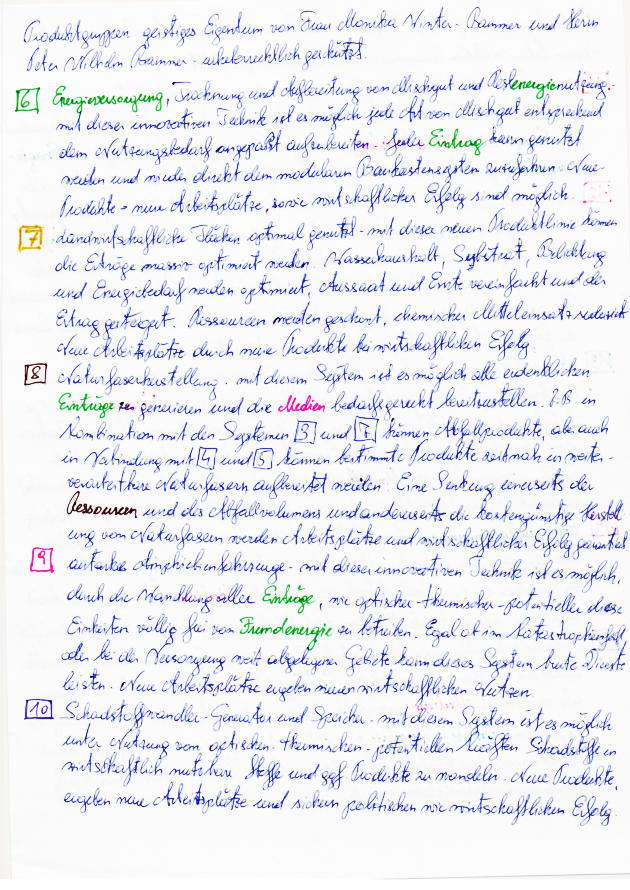 Produktgruppen geistiges Eigentum von Frau Monika Winter-Bammer und Herrn
Peter Wilhelm Bammer - urheberrechtlich geschützt.
6 Energieversorgung, Trocknung und Aufbereitung von Mischgut und Restenergienutzung.
mit dieser innovativen Technik ist es möglich jede Art von Mischgut entsprechend
dem Nutzungsbedarf angepaßt aufzubereiten. Jeder Eintrag kann genutzt
werden und wieder direkt dem modularen Baukastensystem zuzuführen. Neue
Produkte - neue Arbeitsplätze, sowie wirtschaftlicher Erfolg sind möglich.
7 Landwirtschaftliche Flächen optimal genutzt - mit dieser neuen Produktlinie können
die Erträge massiv optimiert werden. Wasserhaushalt, Substrat, Belichtung
und Energiebedarf werden optimiert, Aussaat und Ernte vereinfacht und der
Ertrag gesteigert. Ressourcen werden geschont, chemischer Mitteleinsatz reduziert
Neue Arbeitsplätze durch neue Produkte bei wirtschaftlichen Erfolg.
8 Naturfaserherstellung - mit diesem System ist es möglich alle erdenklichen
Einträge zu generieren und die Medien bedarfsgerecht bereitzustellen. z.B. in
Kombination mit den Systemen 3 und 7 können Abfallprodukte, aber auch
in Verbindung mit 4 und 5 können bestimmte Produkte zeitnah in weiter-
verarbeitbare Naturfasern aufbereitet werden. Eine Senkung einerseits der
Ressourcen und des Abfallvolumens und andererseits die kostengünstige Herstell
ung von Naturfasern werden Arbeitsplätze und wirtschaftlicher Erfolg garantiert
9 autarke Amphibienfahrzeuge - mit dieser innovativen Technik ist es möglich,
durch die Wandlung aller Einträge, wie optischer-thermischer-potentieller diese
Einheiten völlig frei von Fremdenergie zu betreiben. Egal ob im Katastropheneinsatz,
oder bei der Versorgung weit abgelegener Gebiete kann dieses System breite Dienste
leisten. Neue Arbeitsplätze ergeben wirtschaftlichen Nutzen.
10 Schadstoffwandler-Generator und Speicher - mit diesem System ist es möglich
unter Nutzung von optischen-thermischen-potentiellen Kräften Schadstoffe in
wirtschaftlich nutzbare Stoffe und ggf Produkte zu wandeln. Neue Produkte,
ergeben neue Arbeitsplätze und sichern politischen wie wirtschaftlichen Erfolg.